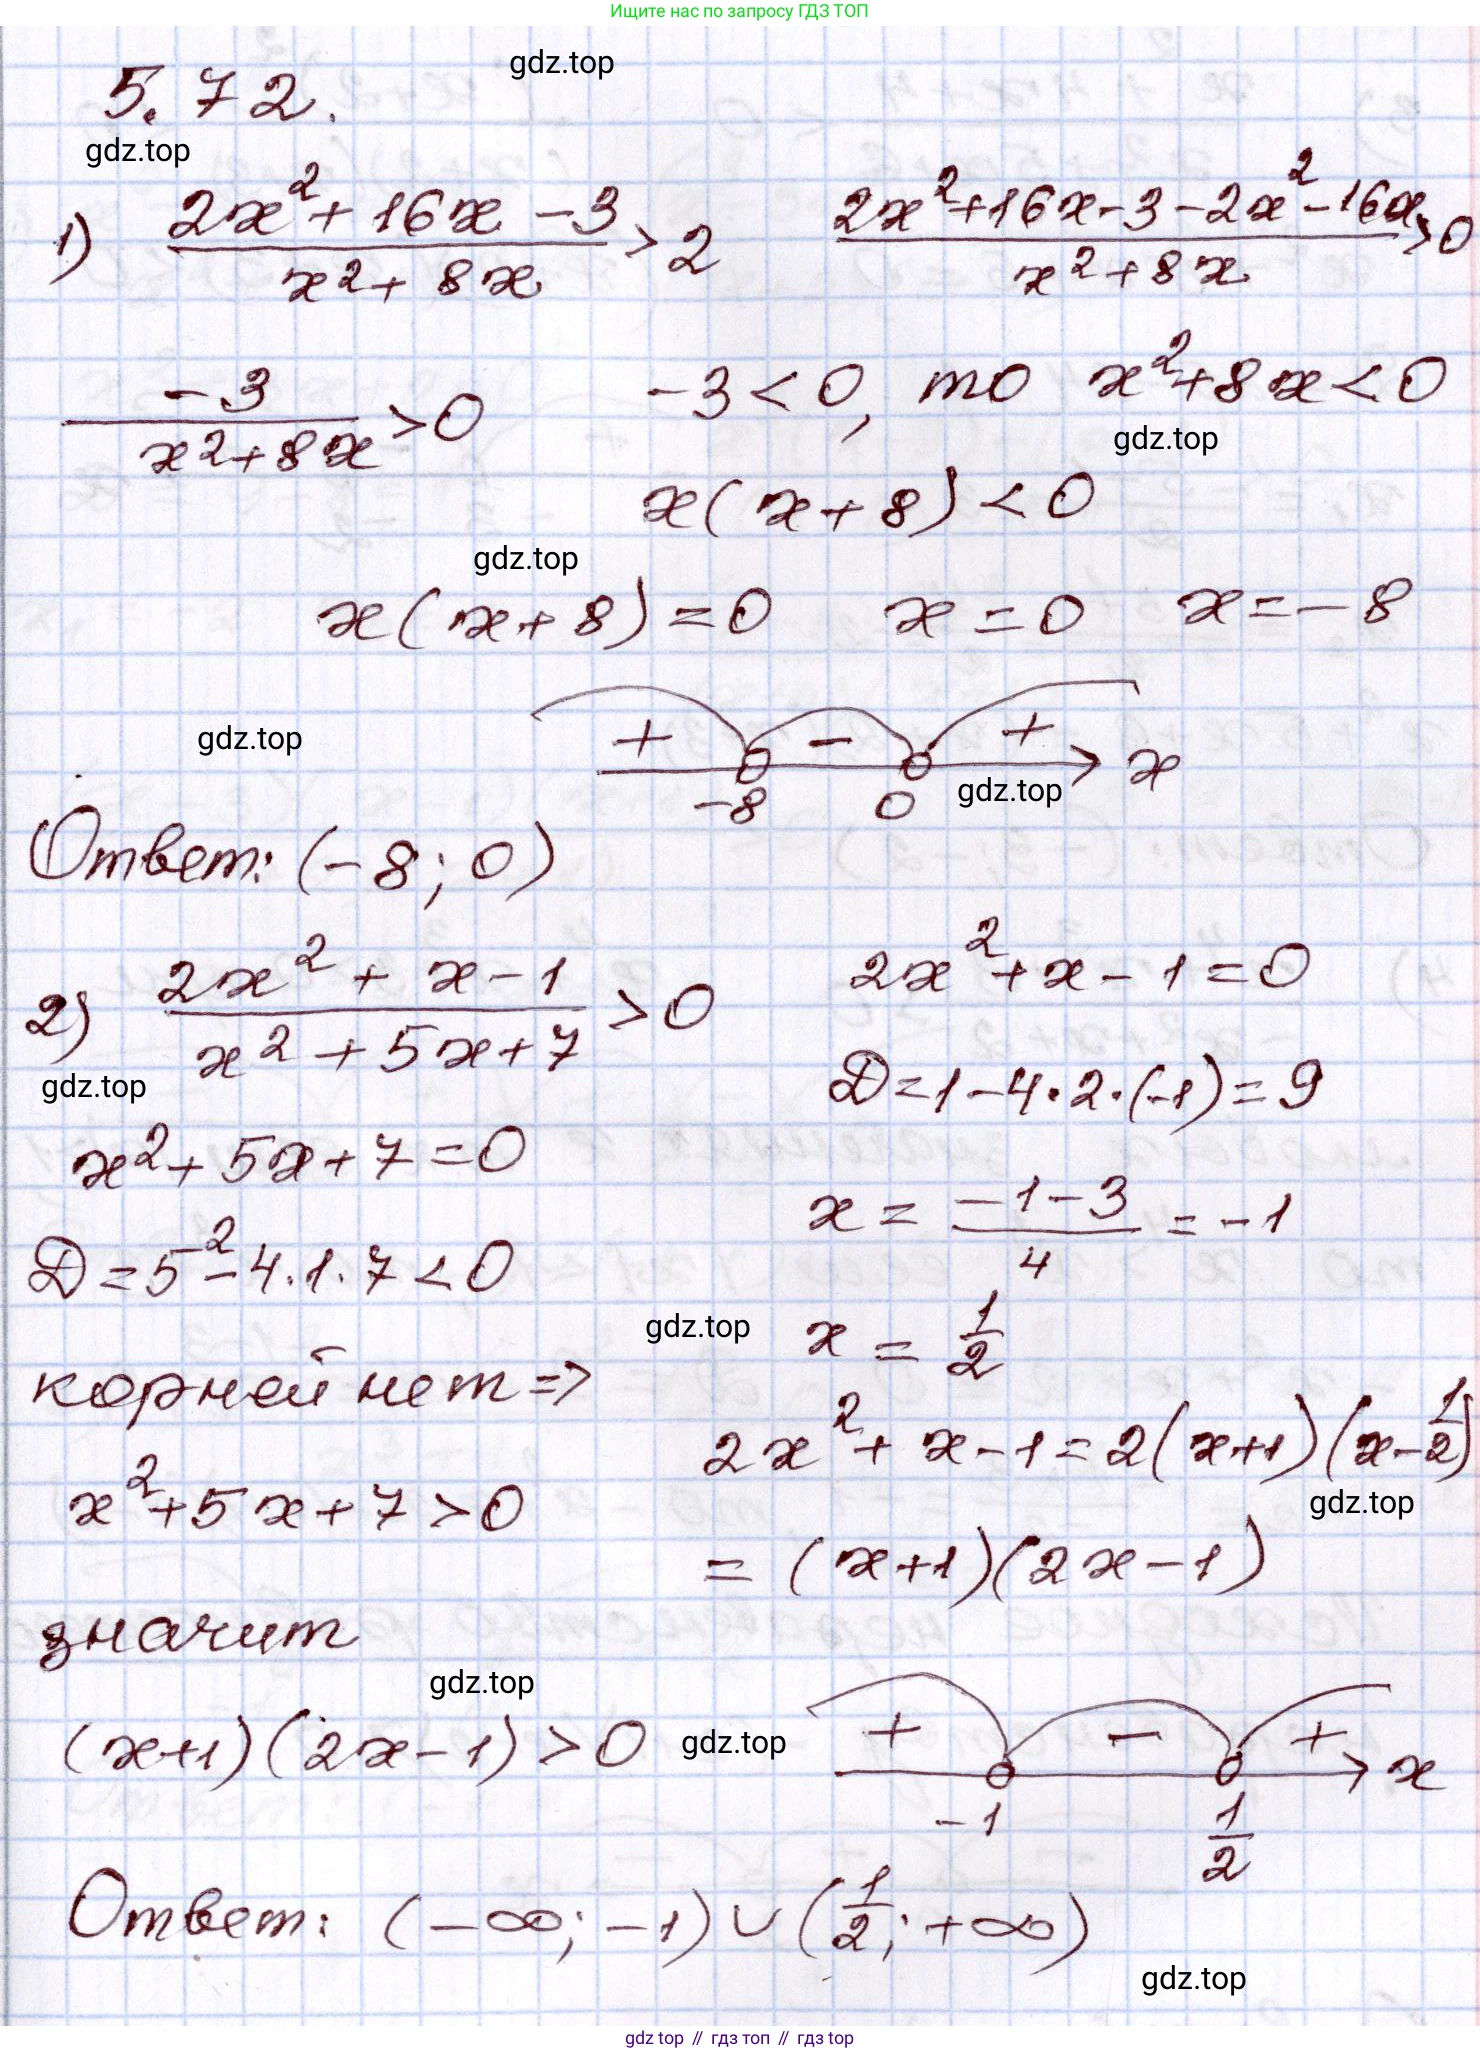 Ищите нас по запросу ГДЗ ТОП
gdz.top
5.72.
gdz.top
1) (2x² + 16x - 3)/(x² + 8x) > 2    (2x² + 16x - 3 - 2x² - 16x)/(x² + 8x) > 0
-3/(x² + 8x) > 0    -3 < 0, то x² + 8x < 0
gdz.top
x(x + 8) < 0
gdz.top
x(x + 8) = 0    x = 0    x = -8
gdz.top
+ - + x
-8 0 gdz.top
Ответ: (-8; 0)
2) (2x² + x - 1)/(x² + 5x + 7) > 0    2x² + x - 1 = 0
gdz.top
D = 1 - 4·2·(-1) = 9
x² + 5x + 7 = 0
x = (-1 - 3)/4 = -1
D = 5² - 4·1·7 < 0
gdz.top
x = 1/2
корней нет =>
2x² + x - 1 = 2(x + 1)(x - 1/2)
gdz.top
x² + 5x + 7 > 0
= (x + 1)(2x - 1)
значит
gdz.top
(x + 1)(2x - 1) > 0
gdz.top
+ - + x
-1 1/2
Ответ: (-∞; -1) ∪ (1/2; +∞)
gdz.top
gdz top // гдз топ // gdz top